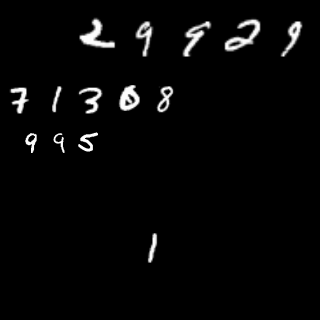 29929
71308
995
1